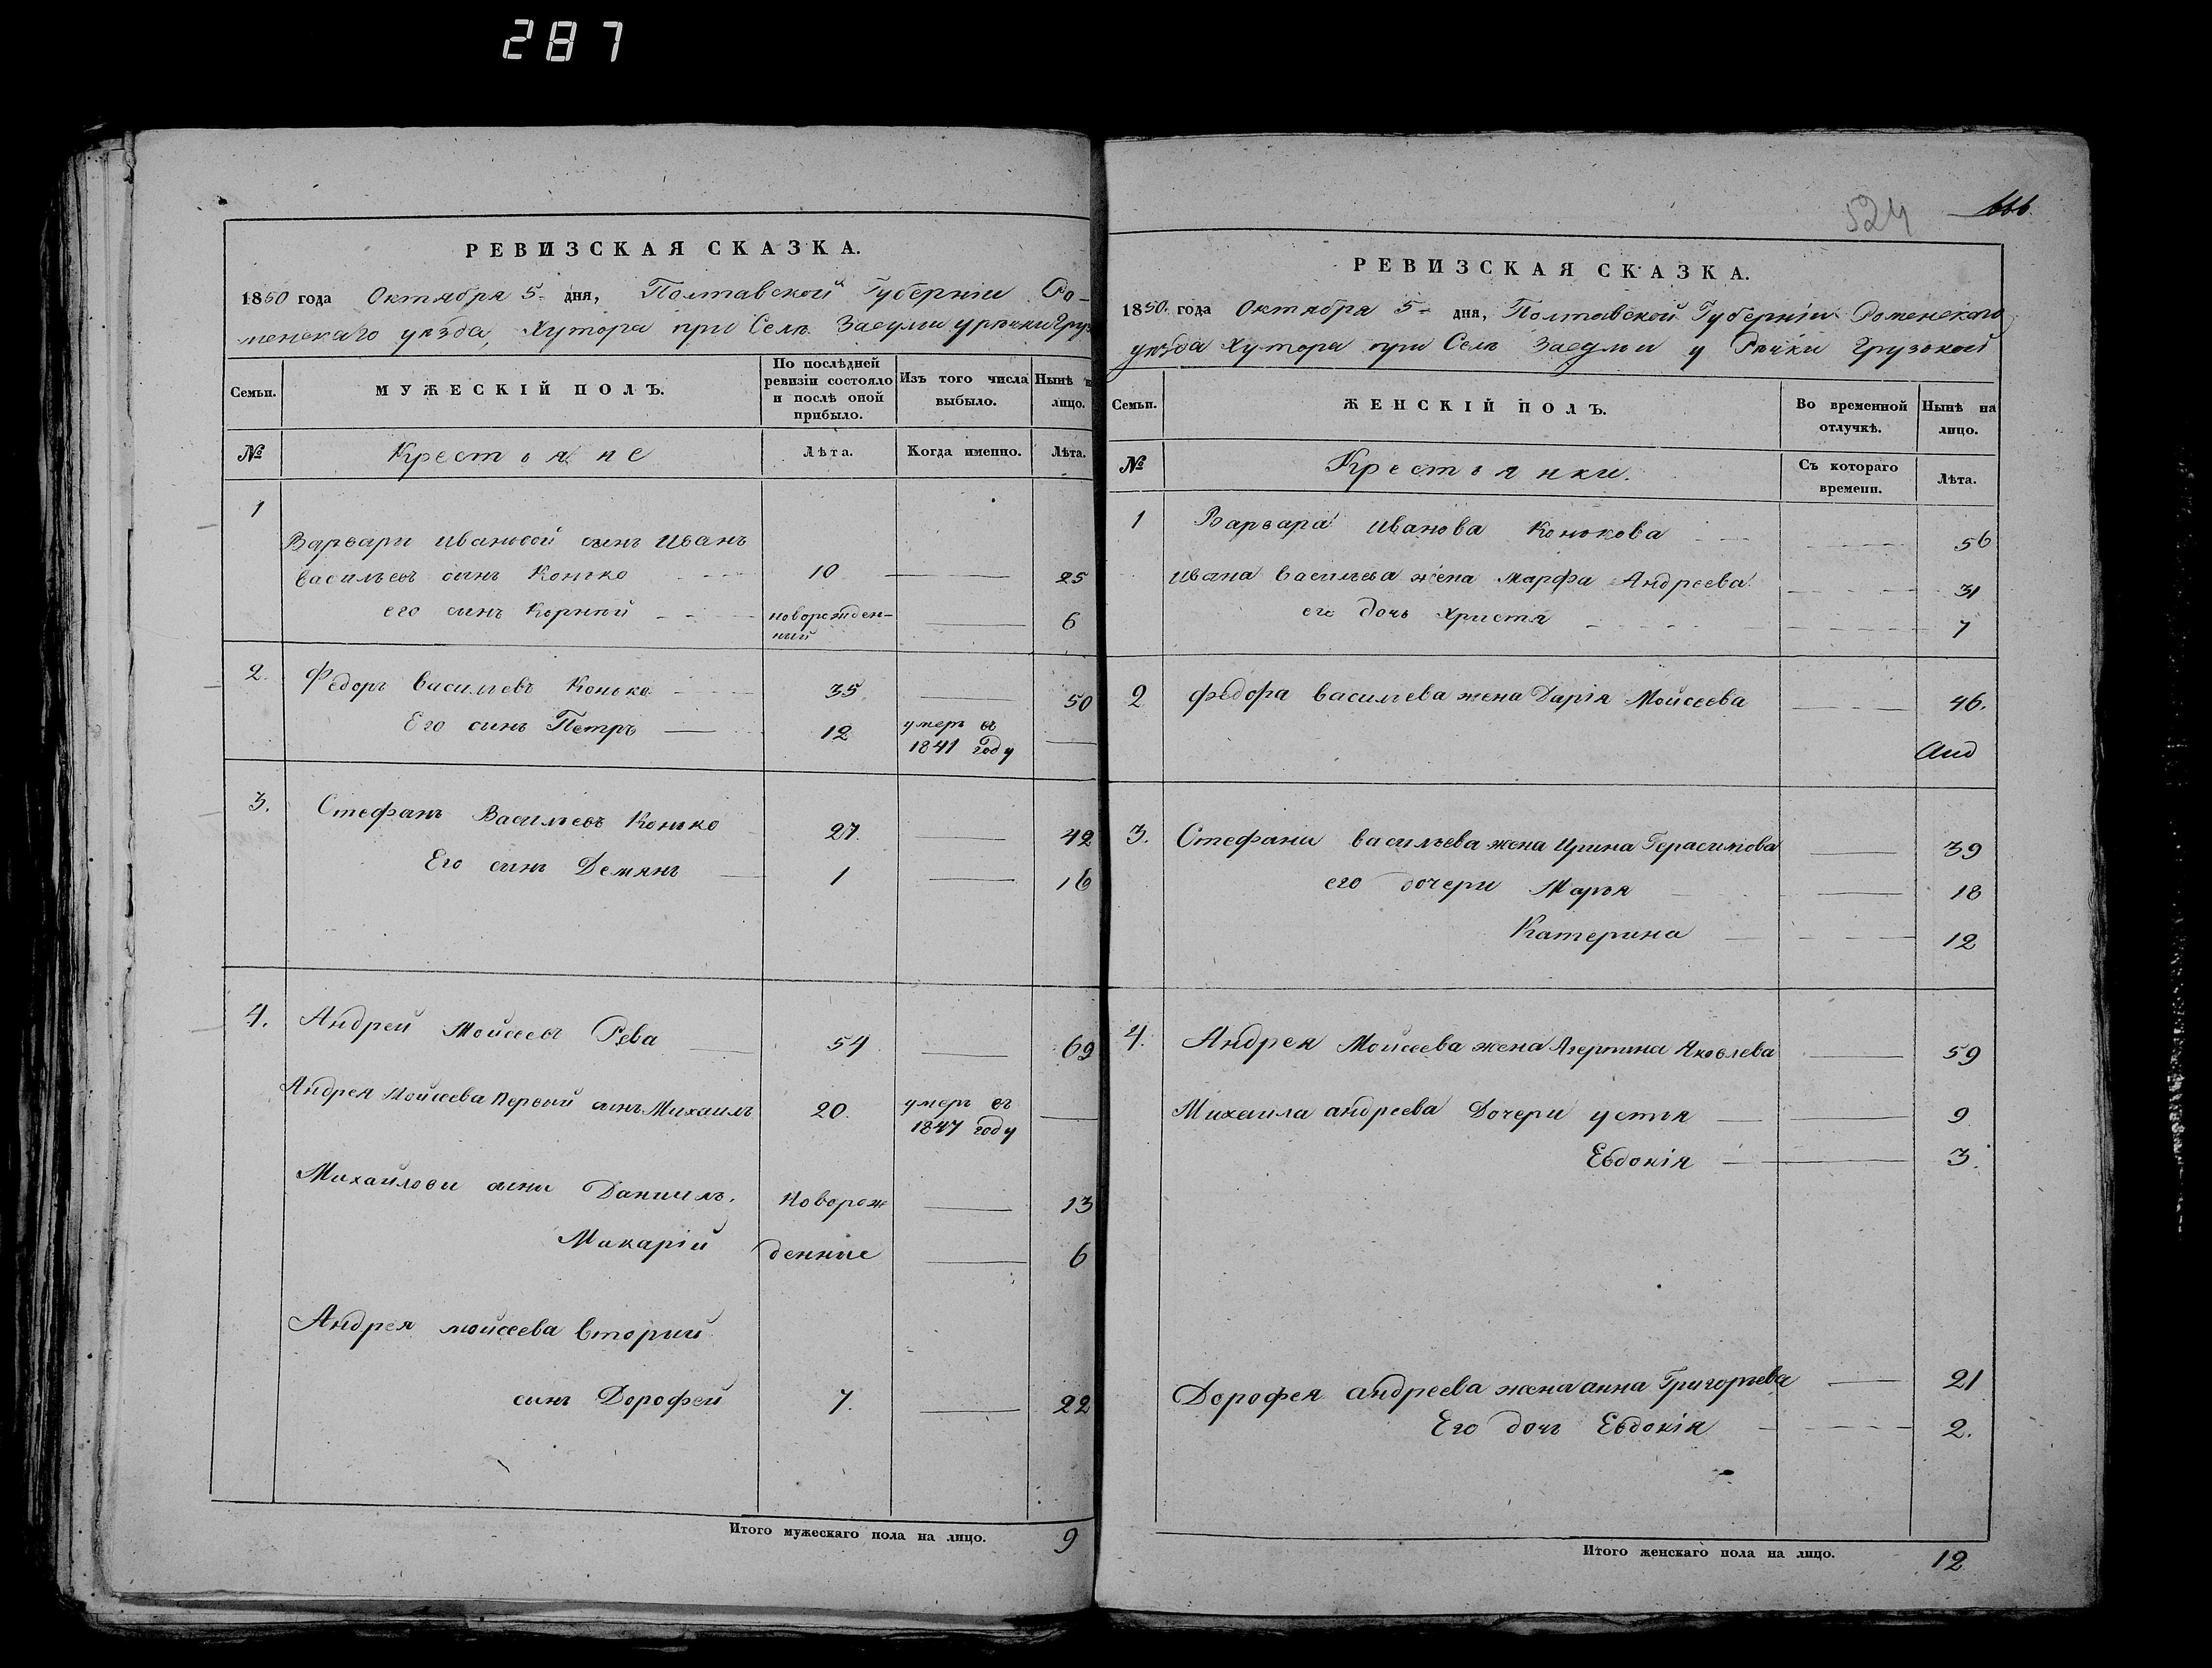 287
РЕВИЗСКАЯ СКАЗКА.
1850 года Октября 5. дня, Полтавской Губерніи Ро-
менскаго уѣзда, Хутора при Селѣ Засули у рѣчки Груз
Семьи.
МУЖЕСКІЙ ПОЛЪ.
По послѣдней ревизіи состояло и послѣ оной прибыло.
Изъ того числа выбыло.
Нынѣ н лицо.
№
Крестьяне
Лѣта.
Когда именно.
Лѣта.
1
Варвари Ивановой синъ Иванъ
Васильевъ синъ Конько 10 25
его синъ Корній новорожден-
ний 6
2. Федоръ Васильевъ Конько 35 50
Его синъ Петръ 12 умеръ въ
1841 году
3. Стефанъ Васильевъ Конько 27 42
Его синъ Демянъ 1 16
4. Андрей Мойсеевъ Рева 54 69
Андрея Мойсеева Первий синъ Михаилъ 20. умеръ въ
1847 году
Михайлови сини Даниилъ. Новорож 13
Макарій денние 6
Андрея мойсеева вторий
синъ Дорофей 7. 22
Итого мужескаго пола на лицо. 9
524 666.
РЕВИЗСКАЯ СКАЗКА.
1850. года Октября 5 дня, Полтавской Губерніи Роменскаго
уѣзда Хутора при Селѣ Засульи у Рѣчки Грузской
Семьи.
ЖЕНСКІЙ ПОЛЪ.
Во временной отлучкѣ.
Нынѣ на лицо.
№
Крестьянки.
Съ котораго времени.
Лѣта.
1 Варвара Иванова Конькова 56
Ивана Васильева жена Марфа Андреева 31
его дочь Христя 7
2 Федора Васильева жена Дарія Мойсеева 46.
3. Стефана Васильева жена Ирина Герасимова 39
его дочери Марья 18
Катерина 12
4. Андрея Мойсеева жена Яковлева 59
Михаила андреева Дочери устя 9
Евдокія 3.
Дорофея андреева жена анна Григорьева 21
Его дочь Евдокія 2.
Итого женскаго пола на лицо. 12